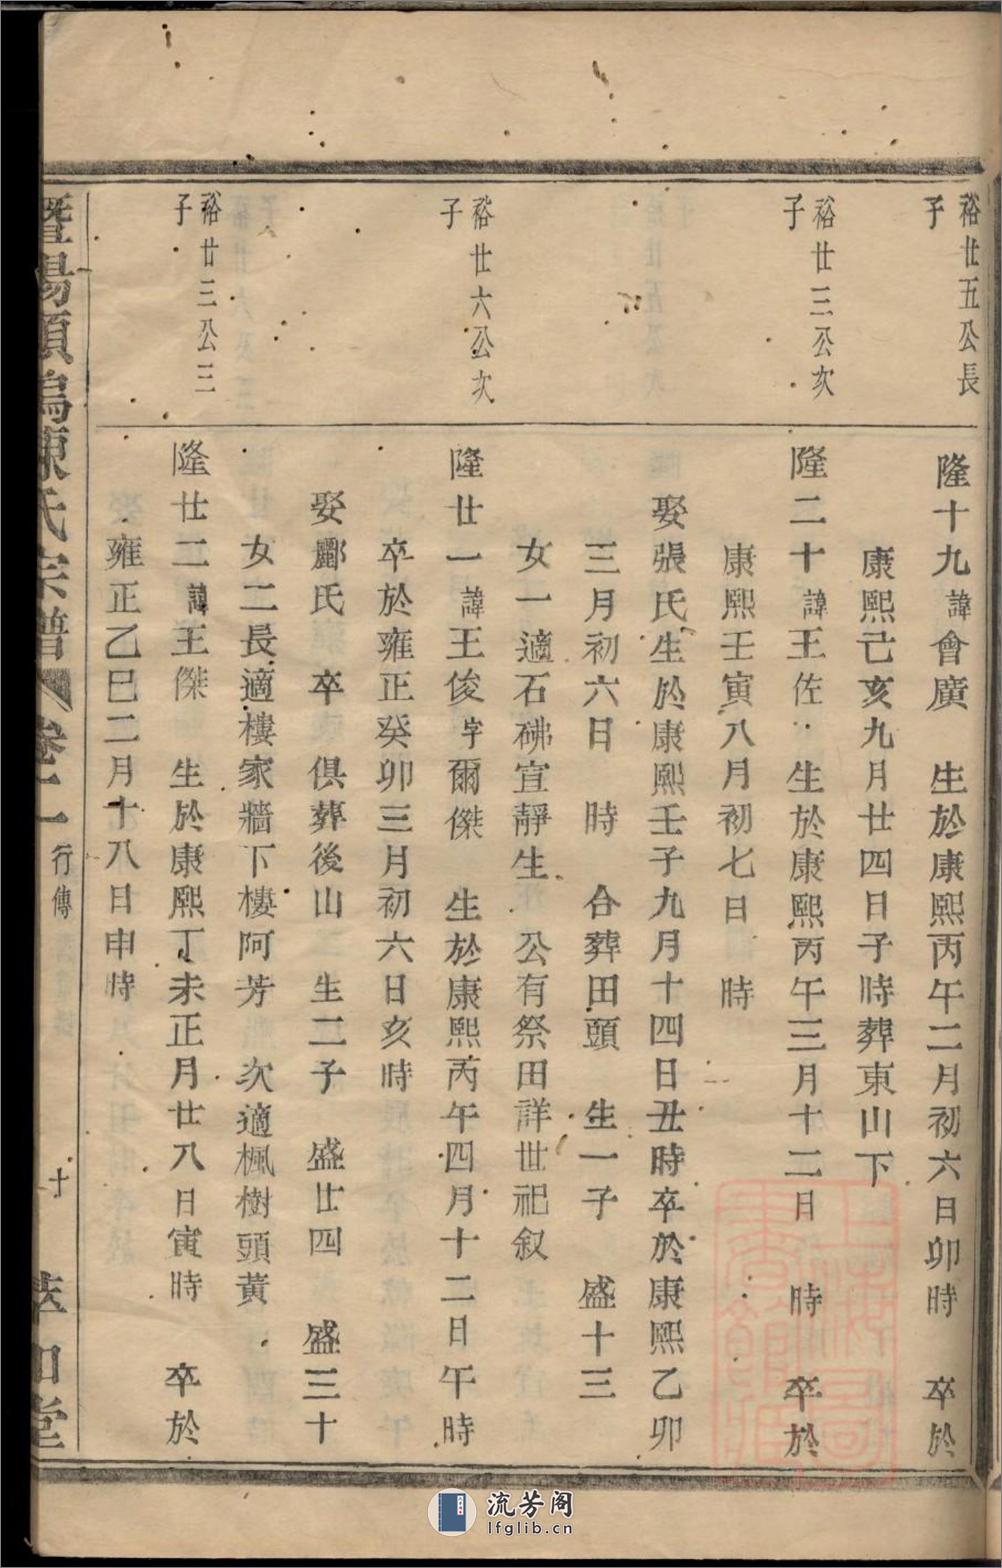 裕廿五公長
子
隆十九諱會廣　生於康熙丙午二月初六日卯時　卒於
康熙己亥九月廿四日子時葬東山下
裕廿三公次
子
隆二十諱王佐　生於康熙丙午三月十二日　時　卒於
康熙壬寅八月初七日　時
娶張氏生於康熙壬子九月十四日丑時卒於康熙乙卯
三月初六日　時　合葬田頭　生一子　盛十三
女一適石砩宣靜生　公有祭田詳世祀叙
裕廿六公次
子
隆廿一諱王俊字爾傑　生於康熙丙午四月十二日午時
卒於雍正癸卯三月初六日亥時
娶酈氏　卒　俱葬後山　生二子　盛廿四　盛三十
女二長適樓家牆下樓阿芳　次適楓樹頭黃
裕廿三公三
子
隆廿二諱王傑　生於康熙丁未正月廿八日寅時　卒於
雍正乙巳二月十八日申時
暨陽 塢陳氏宗譜 卷二 行傳 十 萃和堂
流芳阁
lfglib.cn